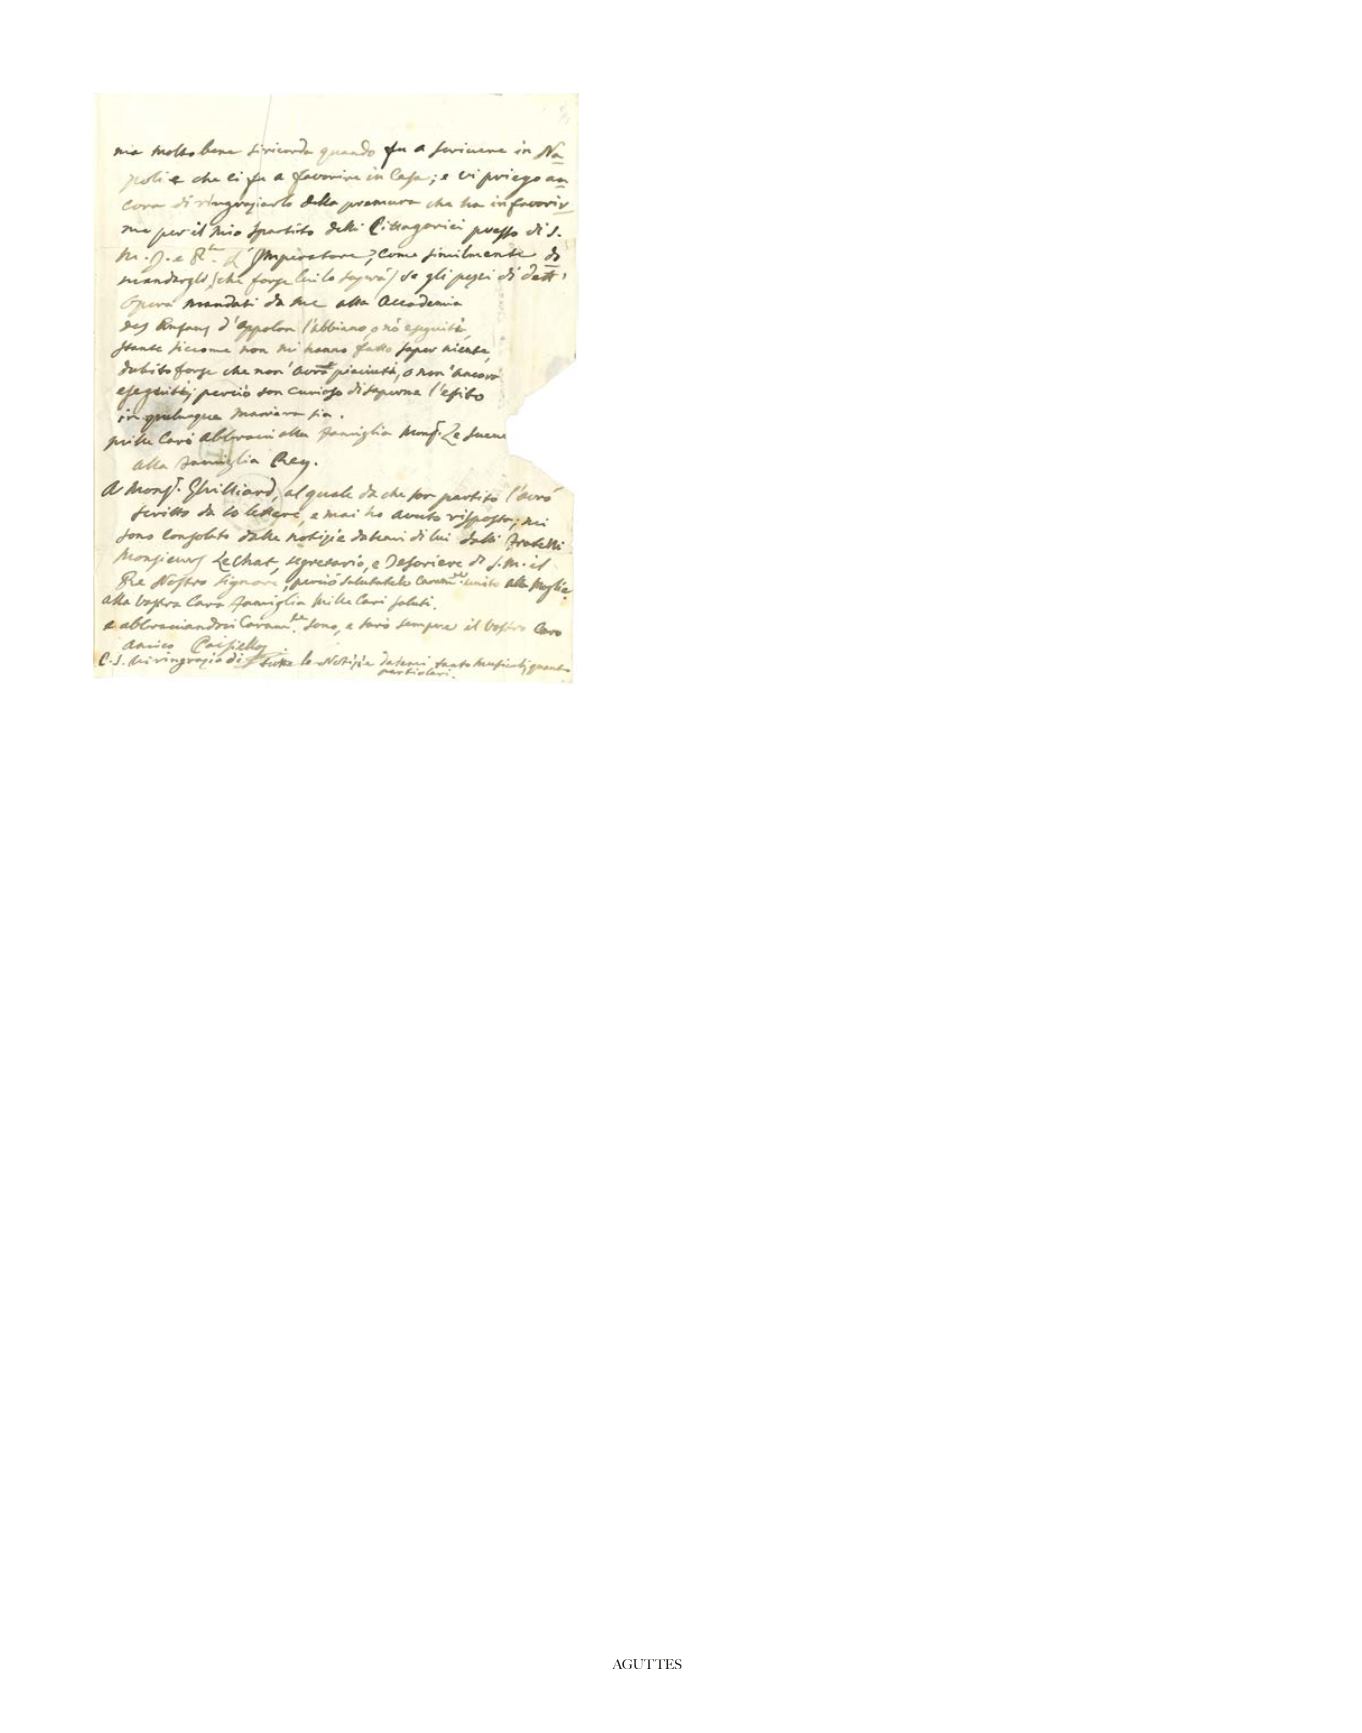 ma molto bene si ricorda quando fu a scrivere in Na=
poli e che ci fu a favorire in Casa; e vi priego an=
cora di ringraziarlo della premura che ha in favorir=
me per il mio spartito delli Pittagorici presso di S.
M. I. e R.le l'Imperatore, Come similmente di
mandargli (che forse lui lo saprà) se gli pezzi di dett'
Opera mandati da me alla Accademia
des Enfans d'Appolon l'abbiano, o nò eseguiti,
stante siccome non mi hanno fatto saper niente,
dubito forse che non piaciuti, o non ancora
eseguiti; perciò son curioso di saperne l'esito
in qualunque maniera sia.
mille Cari Abbracci alla famiglia Monsr. Le Sueur
alla famiglia Rey.
A Monsr. Ghilliard, al quale da che son partito l'avrò
scritto da 10 lettere, e mai ho avuto risposta; mi
sono consolato dalle notizie datemi di lui dalli Fratelli
Monsieurs LeChat, segretario, e Tesoriere di S. M. il
Re Nostro Signore, perciò salutatelo unito alla Moglie.
alla vostra Cara famiglia mille Cari saluti.
e abbracciandovi sono, e sarò sempre il vostro Caro
amico Paisiello.
P.S. Vi ringrazio di tutte le Notizie datemi tanto musicali, quanto
particolari.
AGUTTES